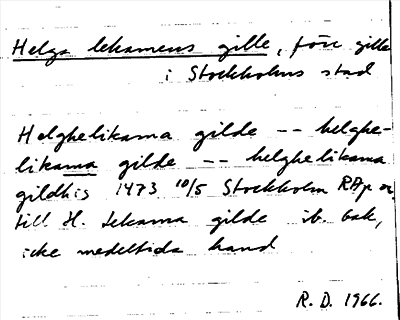 Helga lekamens gille, före gille
i Stockholms stad
Helghelikama gilde -- helghe-
likama gilde -- helghelikama
gildhis 1473 10/5 Stockholm RAp or.
till H. Lekama gilde ib. bak,
icke medeltida hand
R. D. 1966.